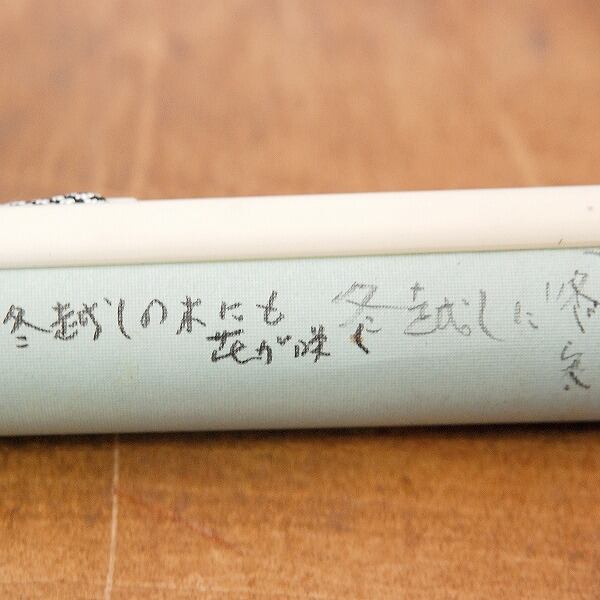 冬越しの木にも
花が咲く
冬越しに